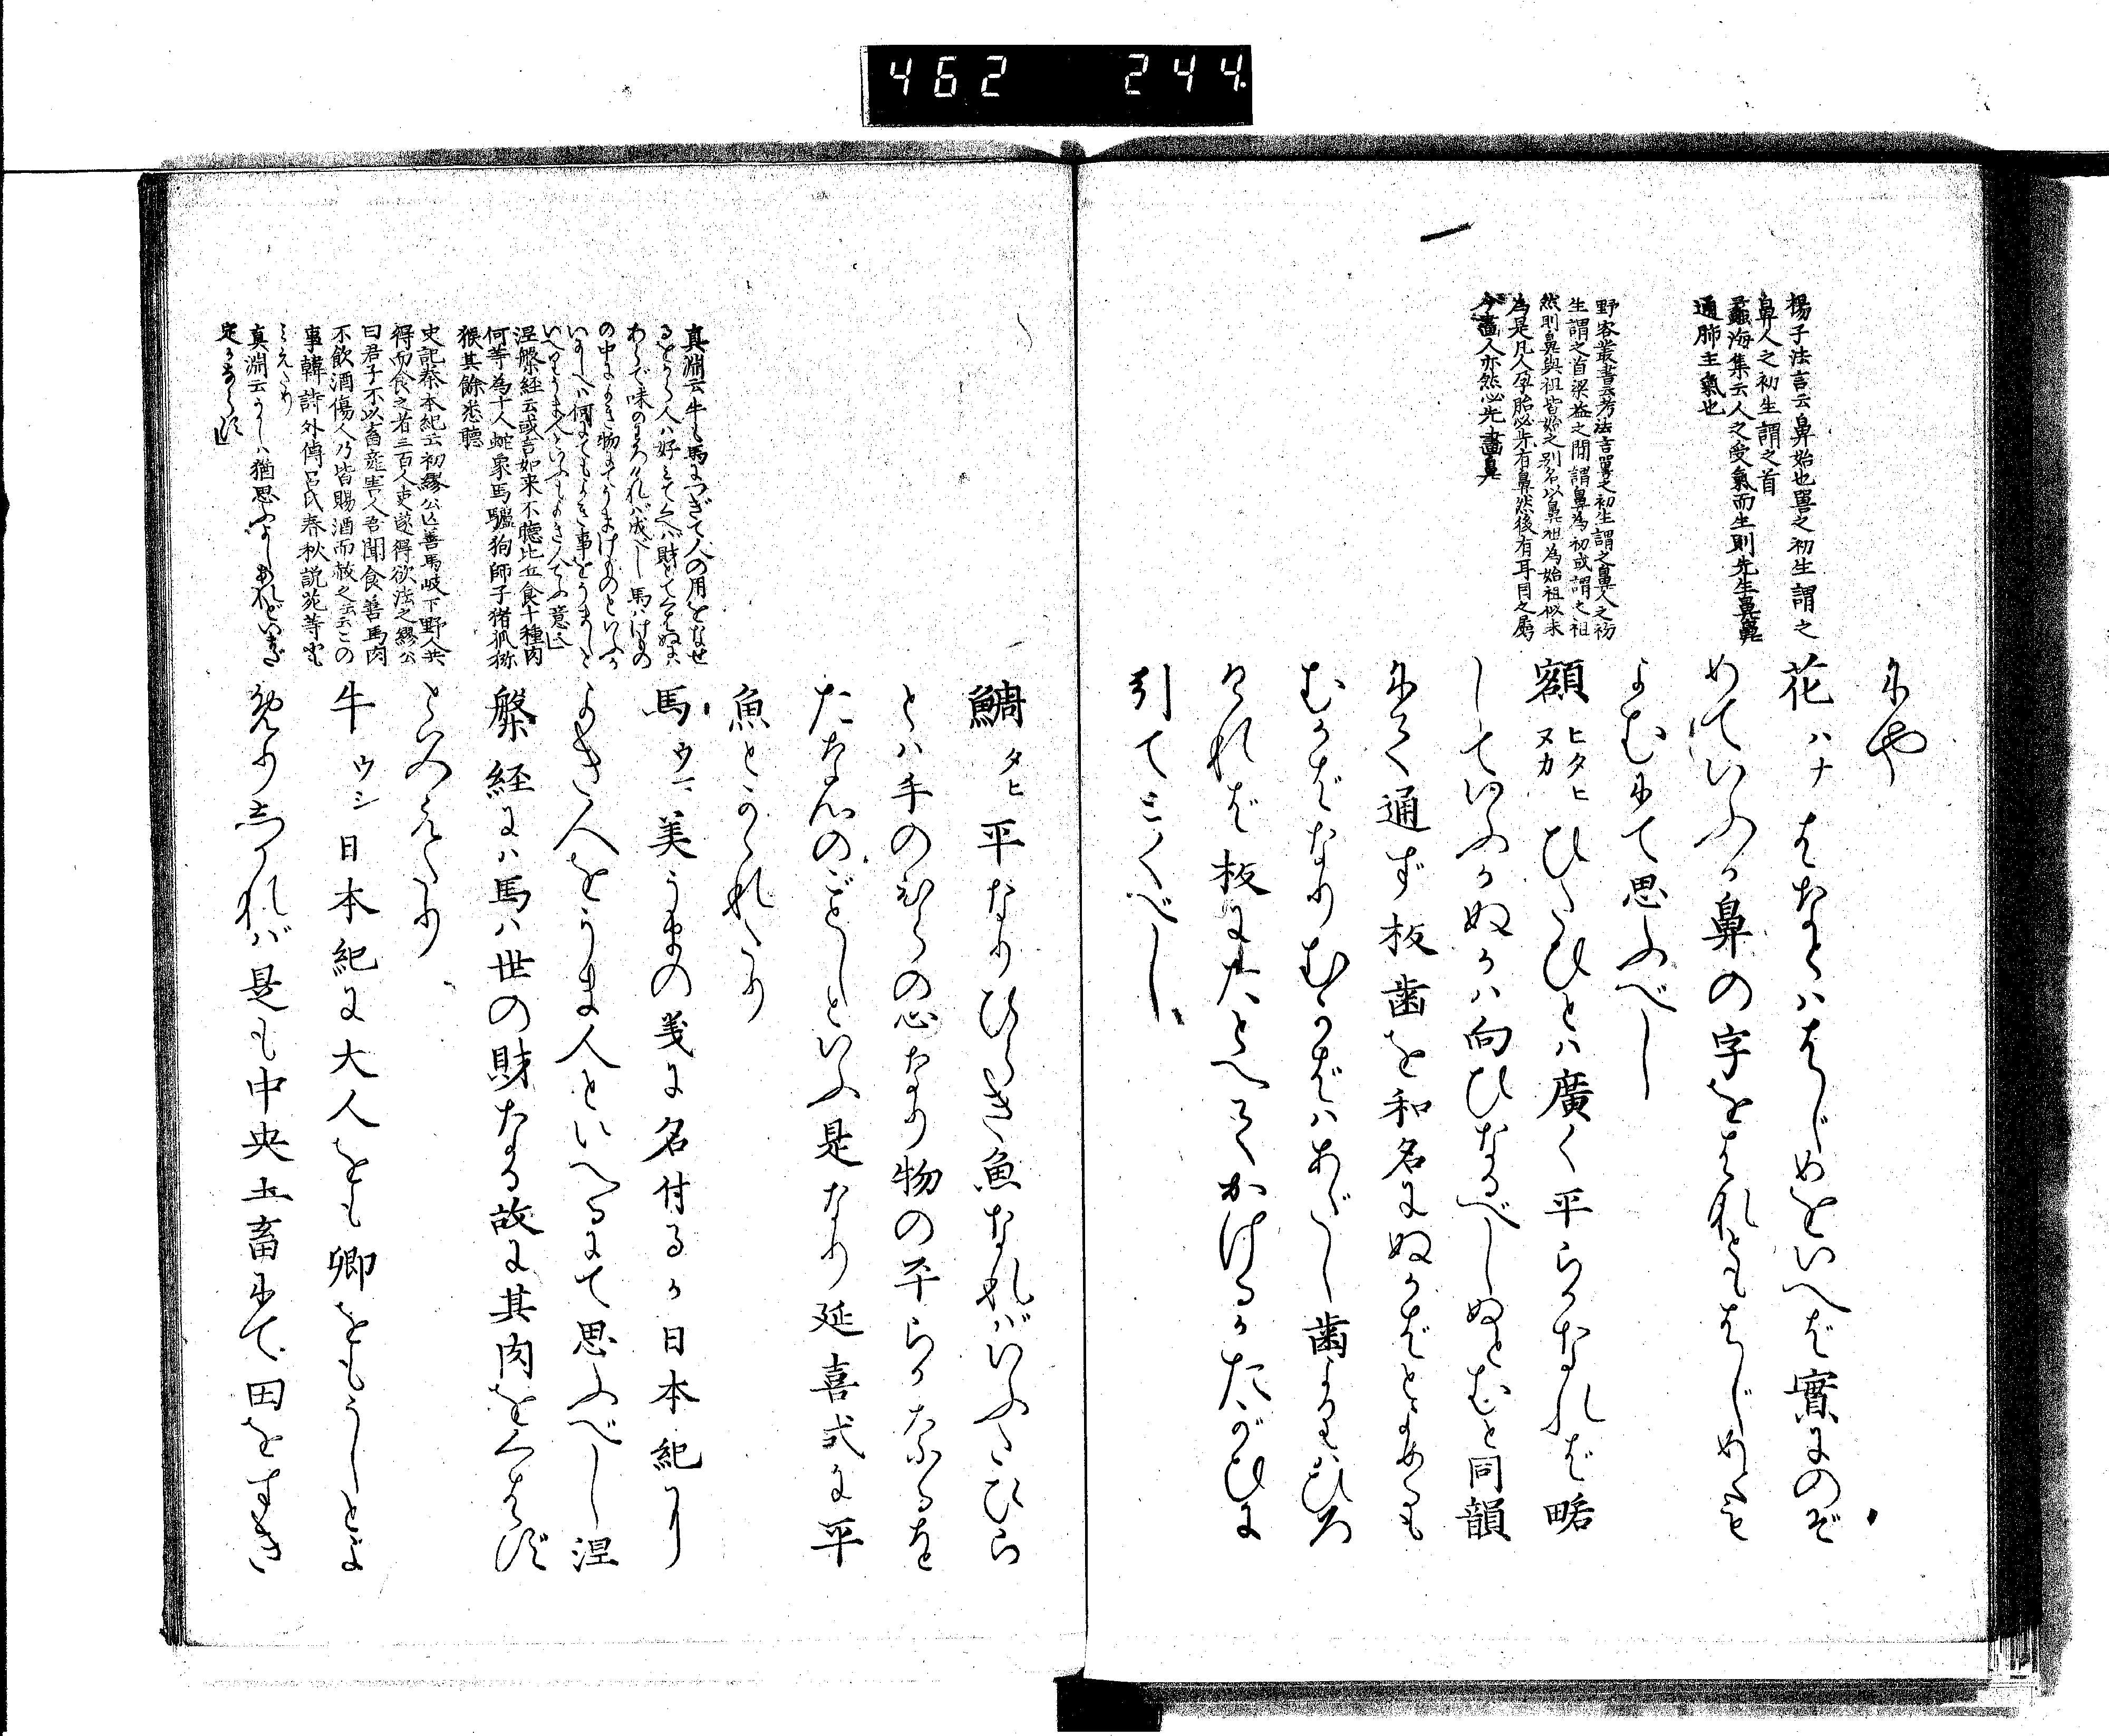 462 244
楊子法言云鼻始也嘼之初生謂之
鼻人之初生謂之首
蠡海集云人之受氣而生則先生鼻
通肺主氣也
野客叢書云考法言嘼之初生謂之鼻人之初
生謂之首梁益之間謂鼻為初或謂之祖
然則鼻與祖皆始之別名以鼻祖為始祖似未
為是凡人孕胎必先有鼻然後有耳目之屬
今畫人亦然必先畫鼻
にや
花ハナ はなとははじめをいへば實にのぞ
めていふか鼻の字をはなともはじめとも
よむにて思ふべし
額ヒタヒ ヌカ ひたひとは廣く平らかなれば略
していふかぬかは向ひなるべしぬとむと同韻
にて通ず板歯を和名にぬかばとよめるも
むかばなりむかばはあがし歯よりはひろ
ければ板にたとへてかけるかたがひに
引てみるべし
真淵云牛馬につぎて人の用をなせ
涅槃経云或言如来不聴比丘食十種肉
何等為十人蛇象馬驢狗師子猪狐獼
猴其餘悉聴
史記秦本紀云初繆公亡善馬岐下野人共
得而食之者三百人吏逐得欲法之繆公
曰君子不以畜産害人吾聞食善馬肉
不飲酒傷人乃皆賜酒而赦之云云この
事韓詩外傳呂氏春秋説苑等にも
みえたり
真淵云うしは猶思ふよしあれどいまだ
定かならず
鯛タヒ 平なりひらき魚なればいふたひら
とは手のひらの心なり物の平らかなるを
たな心のごとしといふ是なり延喜式に平
魚とかかれたり
馬ウマ 美うまの義に名付るか日本紀に
よき人をうま人といへるにて思ふべし涅
槃経には馬は世の財なる故に其肉をくはず
とみえたり
牛ウシ 日本紀に大人をも卿をもうしとよ
めりしかれば是も中央土畜にて田をすき